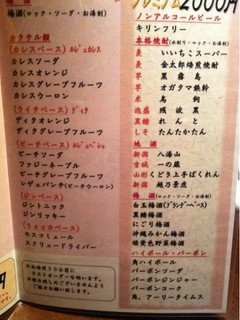 梅酒(ロック・ソーダ・お湯割)
カクテル類
(カシスベース)
カシスソーダ
カシスオレンジ
カシスグレープフルーツ
カシスウーロン
(ライチベース)
ディタオレンジ
ディタグレープフルーツ
(ピーチベース)
ピーチソーダ
ファジーネーブル
ピーチグレープフルーツ
レゲェパンチ(ピーチウーロン)
(ジンベース)
ジントニック
ジンリッキー
(ウォッカベース)
モスコミュール
スクリュードライバー
2000円
ノンアルコールビール
キリンフリー
本格焼酎(水割り・ロック・お湯割)
麦 いいちこスーパー
麦 金太郎焙煎焼酎
芋 黒霧島
芋 オガタマ蘇鈴
米 鳥飼
泡盛 残波黒
黒糖 れんと
しそ たんたかたん
地酒
新潟 八海山
宮城 一ノ蔵
山形 くどき上手ばくれん
新潟 越乃景虎
梅酒(ロック・ソーダ・お湯割)
白玉梅酒(ブランデーベース)
黒糖梅酒
にごり梅酒
沖縄みかん梅酒
緑黄色野菜梅酒
ハイボール・バーボン
角ハイボール
バーボンソーダ
バーボンジンジャー
バーボンコーク
角、アーリータイムス